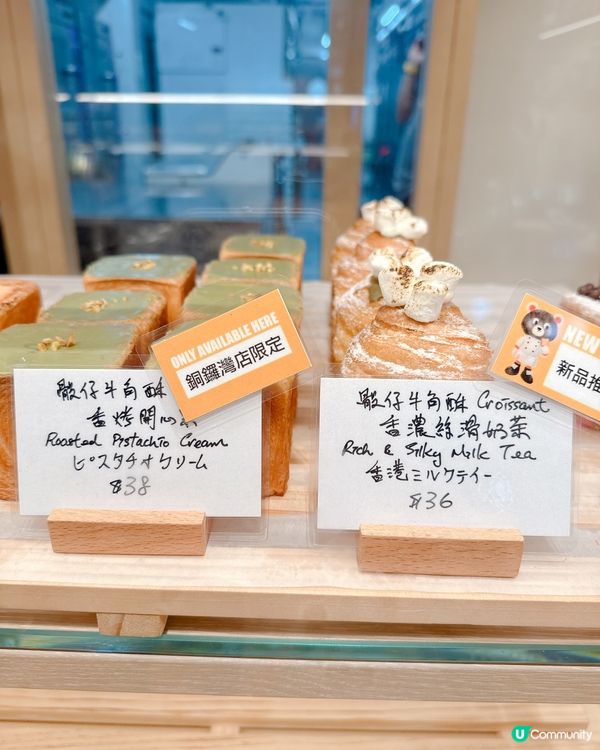 ONLY AVAILABLE HERE
銅鑼灣店限定
骰仔牛角酥
香烤開心果
Roasted Pistachio Cream
ピスタチオクリーム
$38
NEW
新品推
骰仔牛角酥 Croissant
香濃絲滑奶茶
Rich & Silky Milk Tea
香港ミルクティー
$36
U Community